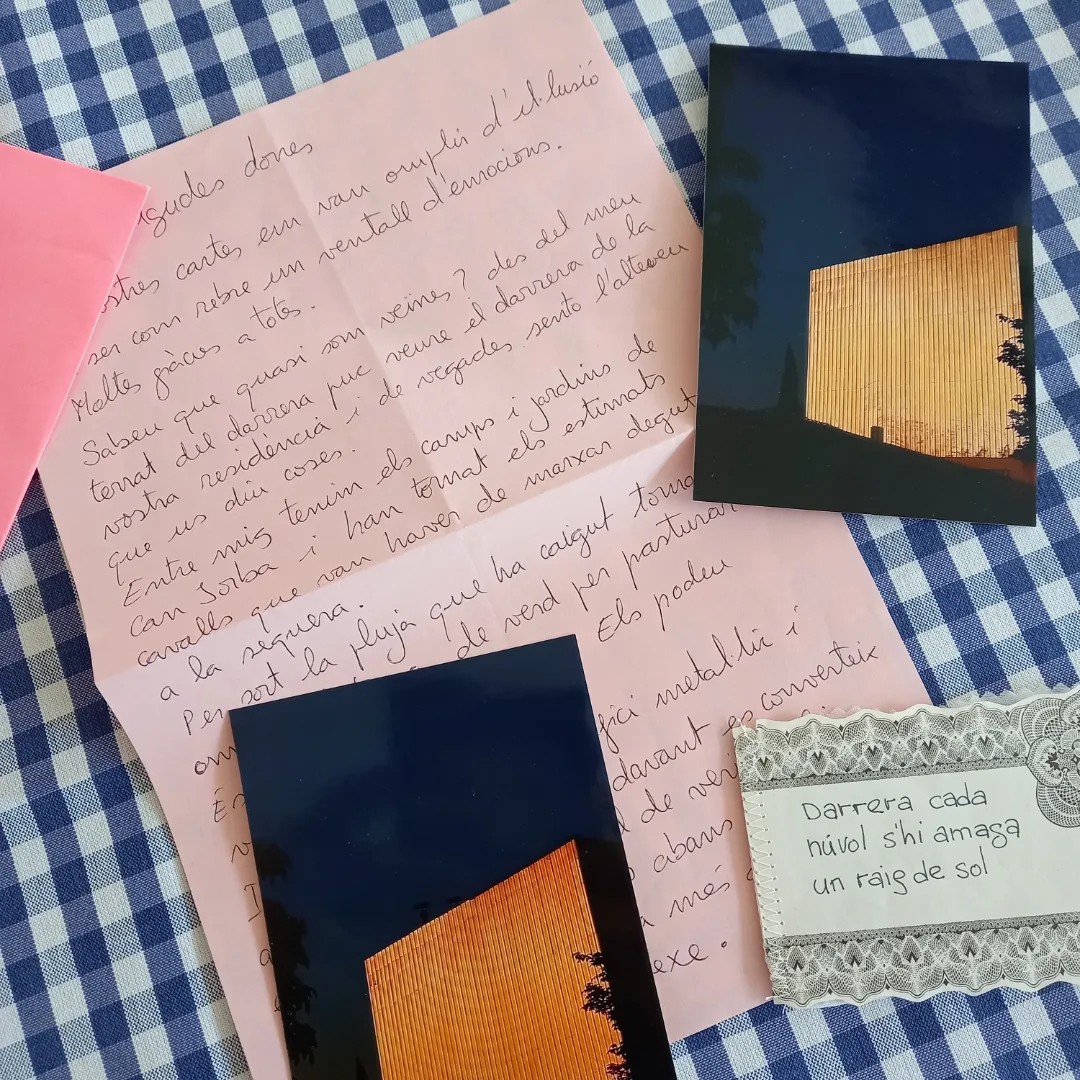 dones
cartes em van omplir d'il·lusió
ser com rebre un ventall d'emocions.
Moltes gràcies a totes.
Sabeu que quasi som veïnes? des del meu
terrat del darrera puc veure el darrera de la
vostra residència i de vegades sento l'altaveu
que us diu coses.
Entre mig tenim els camps i jardins de
can Jorba i han tornat els estimats
cavalls que van haver de marxar degut
a la sequera.
Per sort la pluja que ha caigut
de verd per pasturar
Els podeu
metal·lic i
davant es converteix
de
abans
més
exe.
Darrera cada
núvol s'hi amaga
un raig de sol